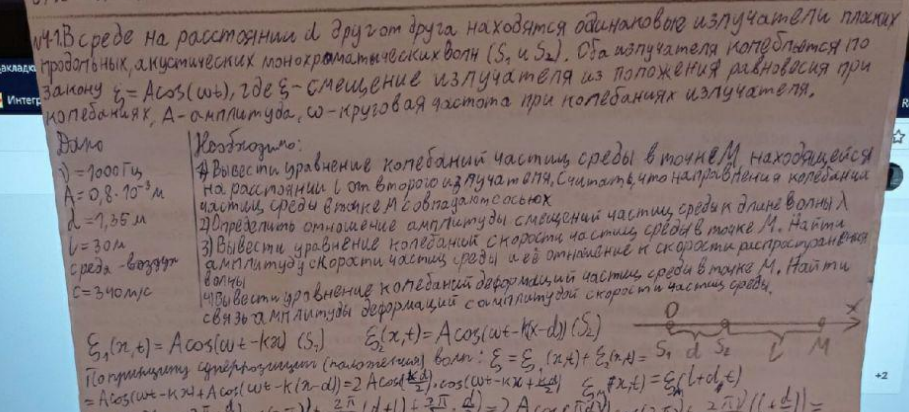 №4.1. В среде на расстоянии d друг от друга находятся одинаковые излучатели плоских
продольных, акустических монохроматических волн (S₁ и S₂). Оба излучателя колеблется по
закону ξ = Acos(ωt), где ξ - смещение излучателя из положения равновесия при
колебаниях, A - амплитуда, ω - круговая частота при колебаниях излучателя.
Дано
ν = 1000 Гц
A = 0,8·10⁻³ м
d = 1,35 м
l = 30 м
среда - воздух
c = 340 м/с
Необходимо:
1) Вывести уравнение колебаний частиц среды в точке M находящейся
на расстоянии l от второго излучателя. Считать, что направления колебания
частиц среды в точке M совпадают с осью x
2) Определить отношение амплитуды смещений частиц среды к длине волны λ
3) Вывести уравнение колебаний скорости частиц среды в точке M. Найти
амплитуду скорости частиц среды и её отношение к скорости распространения
волны
4) Вывести уравнение колебаний деформаций частиц среды в точке M. Найти
связь амплитуды деформаций с амплитудой скорости частиц среды.
O x
S₁ d S₂ l M
ξ₁(x,t) = Acos(ωt-kx) (S₁) ξ₂(x,t) = Acos(ωt-k(x-d)) (S₂)
По принципу суперпозиции (положения) волн: ξ = ξ₁(x,t) + ξ₂(x,t) =
= Acos(ωt-kx) + Acos(ωt-k(x-d)) = 2Acos(kd/2)·cos(ωt-kx+kd/2) = ξ(l+d,t)
закладк
Интегр
+2